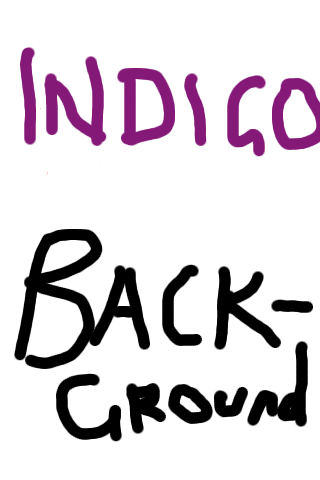 INDIGO
BACK-
GROUND